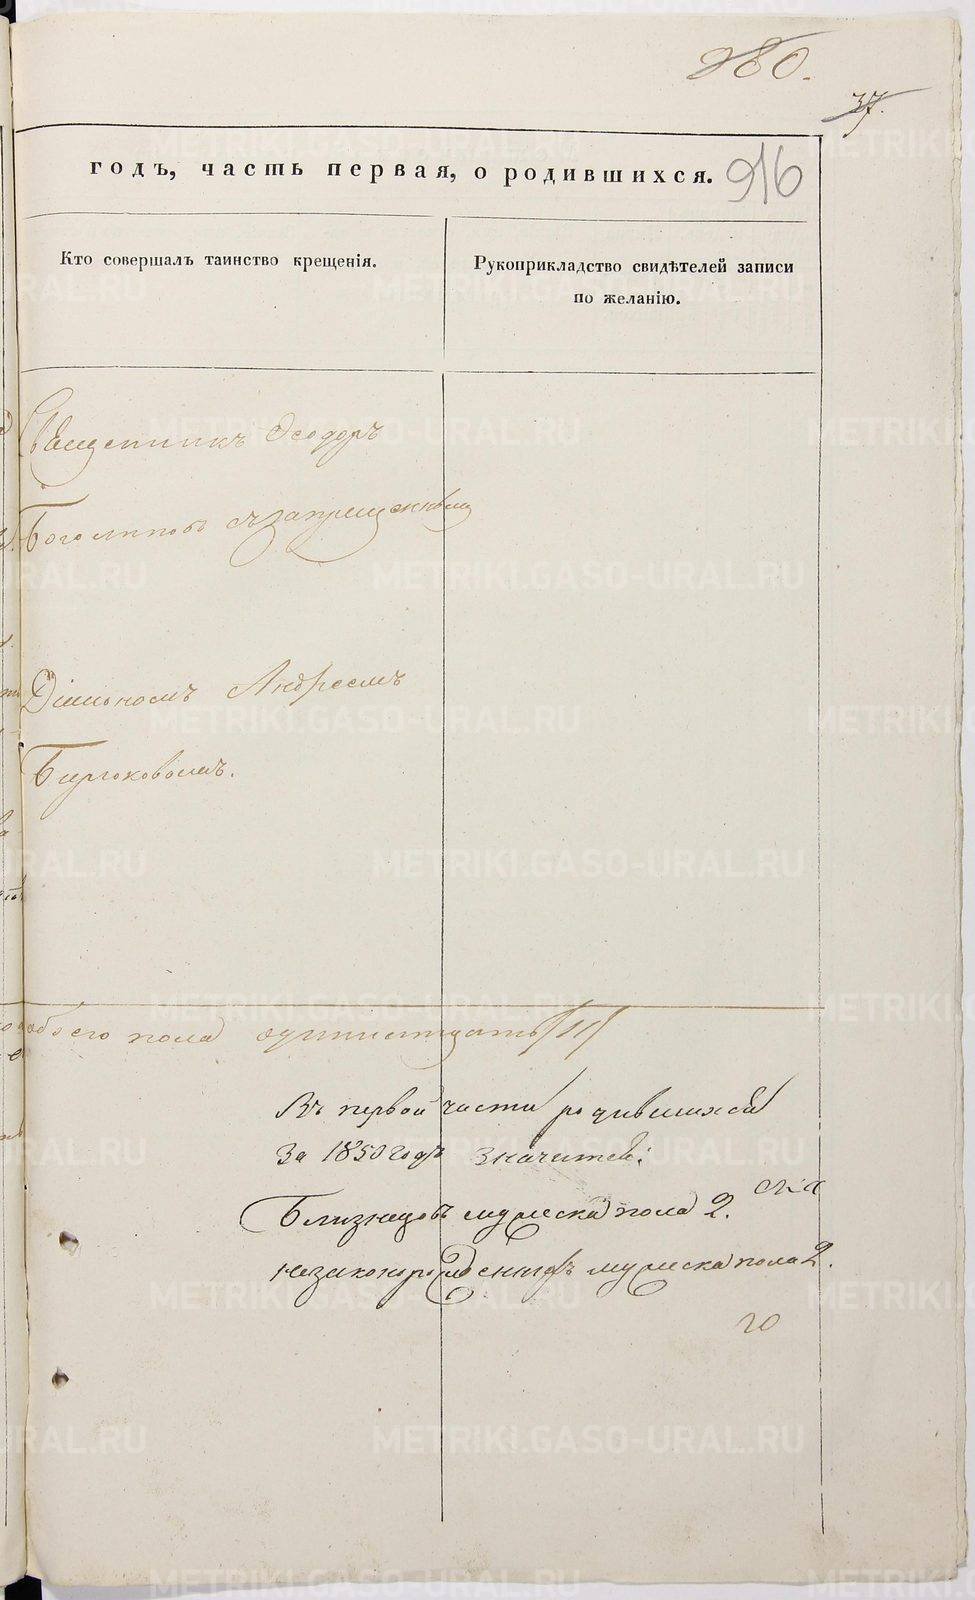 280.
37.
годъ, часть первая, о родившихся.
916
Кто совершалъ таинство крещенія.
Рукоприкладство свидѣтелей записи
по желанію.
Священникъ Ѳеодоръ
Боголиповъ съ запрещеннымъ
Діякономъ Андреемъ
Бирюковымъ.
обоего пола одиннатцать /11/
Въ первой части родившихся
За 1850 годъ значится:
Близнецовъ мужеска пола 2.
незаконорожденныхъ мужеска пола 2.
METRIKI.GASO-URAL.RU